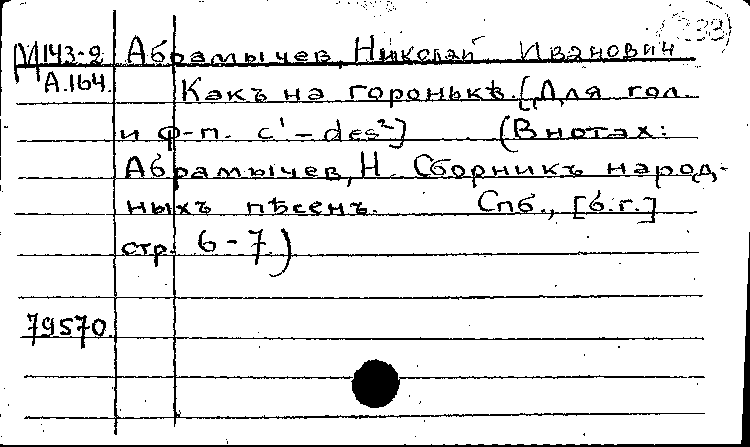 233
М143-2 Абрамычев, Николай Иванович
А.164. Какъ на горонькѣ. [Для гол.
и ф-п. c¹ – des²] (В нотах:
Абрамычев, Н. Сборникъ народ-
ныхъ пѣсенъ. Спб., [б.г.]
стр. 6 – 7.)
79570.